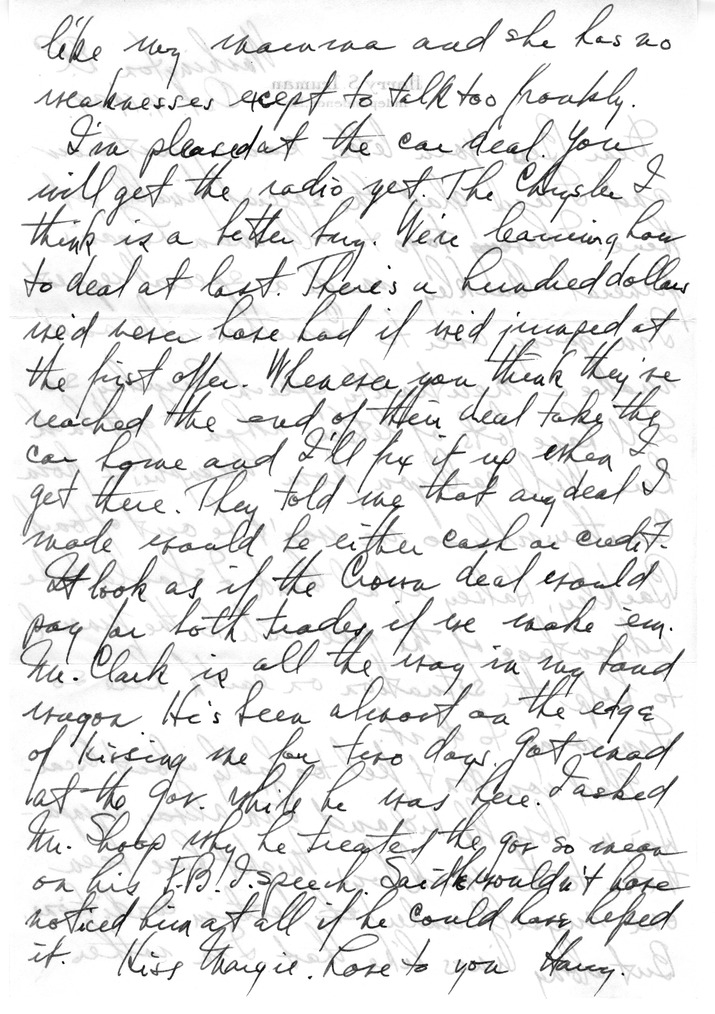 like my mamma and she has no
weaknesses except to talk too frankly.
I'm pleased at the car deal. You
will get the radio yet. The Chrysler I
think is a better buy. We're learning how
to deal at last. There's a hundred dollars
we'd never have had if we'd jumped at
the first offer. Whenever you think they've
reached the end of their deal take the
car home and I'll fix it up when I
get there. They told me that any deal I
made would be either cash or credit.
It look as if the Crown deal would
pay for both trades if we make 'em.
Mr. Clark is all the way in my band
wagon. He's been almost on the edge
of kissing me for two days. Got mad
at the Gov. while he was here. I asked
Mr. Shoop why he treated the gov so mean
on his F.B.I. speech. Said he wouldn't have
noticed him at all if he could have helped
it. Kiss Margie. Love to you Harry.